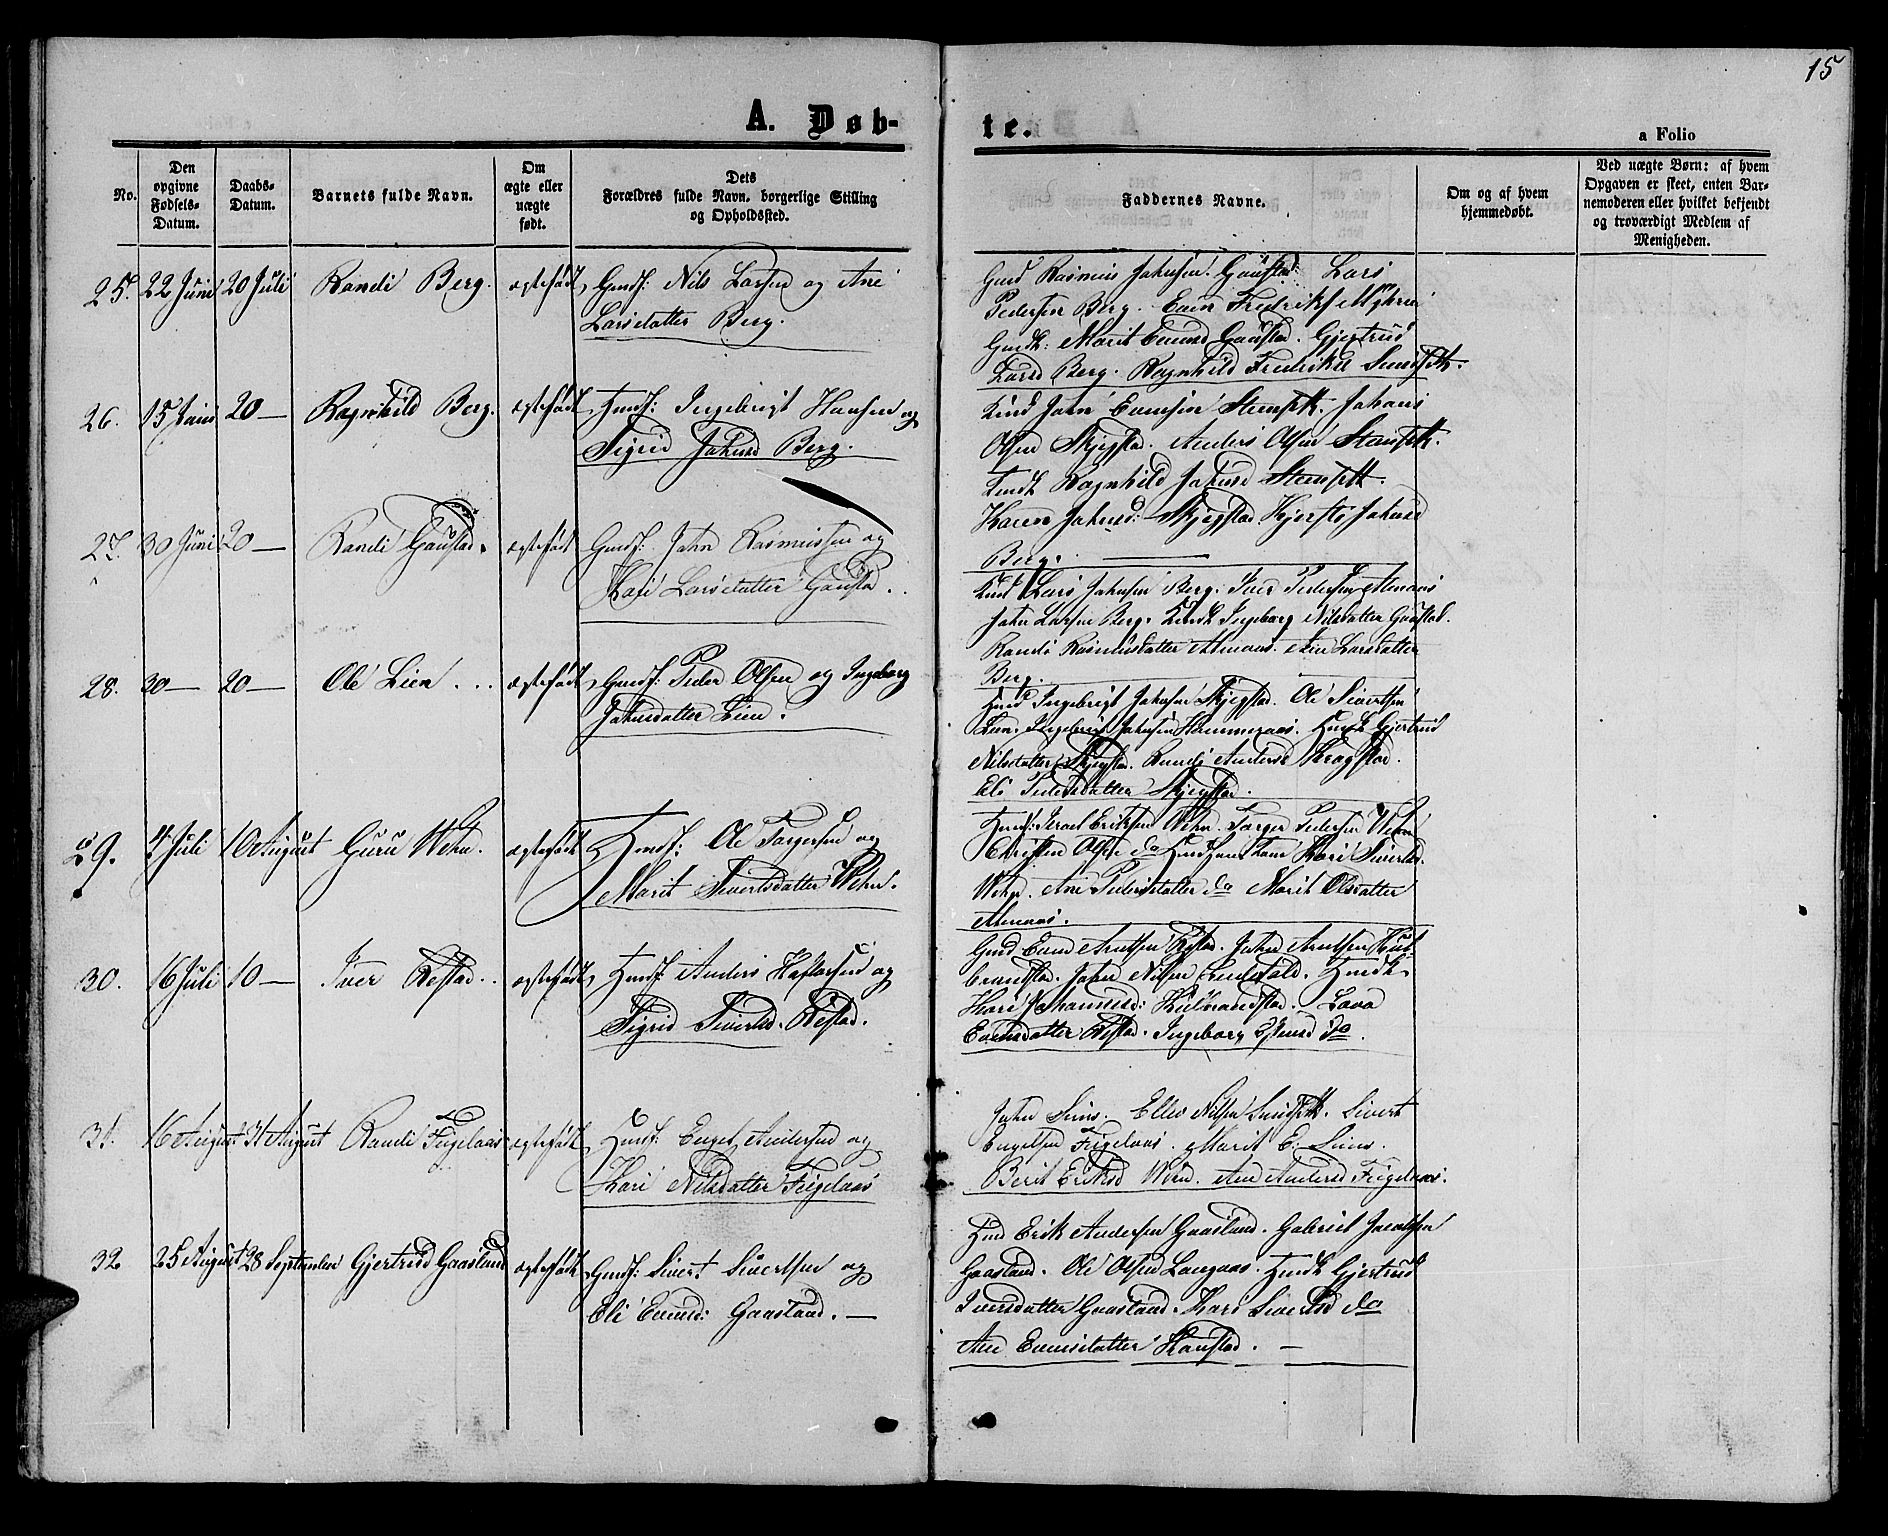 15
A. Døb-
te.
a Folio
No.
Den
opgivne
Fødsels-
Datum.
Daabs-
Datum.
Barnets fulde Navn.
Om
ægte eller
uægte
født.
Dets
Forældres fulde Navn, borgerlige Stilling
og Opholdssted.
Faddernes Navne.
Om og af hvem
hjemmedøbt.
Ved uægte Børn: af hvem
Opgaven er skeet, enten Bar-
nemoderen eller hvilket bekjendt
og troværdigt Medlem af
Menigheden.
25. 22 Juni 20 Juli Randi Berg. ægtefødt Gmdf: Nils Larsen og Ane
Larsdatter Berg.
Gmd Rasmus Johnsen Gaustad. Lars
Pedersen Berg. Even Fredriks
Gmdk: Marit Evensd Gaustad. Gjertrud
Larsd Berg. Ragnhild Fredriksd
26. 15 Juni 20 — Ragnhild Berg. ægtefødt Hmdf: Ingebrigt Hansen og
Sigrid Johnsd Berg.
John Evensen Johans
Olsen Skjegstad. Anders Olsen
Ragnhild Johnsd
Karen Johnsd: Skjegstad. Kjersti Johnsd
Berg.
27. 30 Juni 20 — Randi Gaustad. ægtefødt Gmdf. John Rasmussen og
Kari Larsdatter Gaustad.
Lars Johnsen Berg. Iver Pedersen Almaas
John Larsen Berg. Ingeborg Nilsdatter Gaustad.
Randi Rasmusdatter Almaas. Ane Larsdatter
Berg.
28. 30 — 20 — Ole Lien ... ægtefødt Gmdf: Peder Olsen og Ingeborg
Johnsdatter Lien.
Gmd Ingebrigt Johnsen Skjegstad. Ole Sivertsen
Lien. Ingebrigt Johnsen Gmdk Gjertrud
Nilsdatter Skjegstad. Randi Andersd Kragstad.
Eli Pedersdatter Skjegstad.
29. 4 Juli 10 August Guru Wehn. ægtefødt Hmdf: Ole Torgersen og
Marit Sivertsdatter Wehn.
Hmd: Israel Eriksen Wehn. Torger Pedersen Wehn
Christen Olsen do Kari Sivertsd.
Wehn. Ane Pedersdatter do Marit Olsdatter
Almaas.
30. 16 Juli 10 — Iver Restad.. ægtefødt Hmdf: Anders Haftorsen og
Sigrid Sivertsd. Restad.
Gmd Even Arntsen Restad. John Arntsen Kul-
brandstad. John Nilsen Hmdk
Kari Johannesd: Kulbrandstad. Lava
Evensdatter Restad. Ingeborg do.
31. 16 August 31 August Randi Fugelaas ægtefødt Hmdf: Engel Andersen og
Kari Nilsdatter Fuglaas
John Siens. Ellev Nilsen Sivert
Engelsen Fugelaas. Marit E. Siens.
Berit Eriksd Wehn. Ane Andersd Fugelaas.
32 25 August 28 September Gjertrud Gaasland ægtefødt Gmdf: Sivert Sivertsen og
Eli Evensd: Gaasland. —
Hmd Erik Andersen Gaasland. Gabriel Jacobsen
Gaasland. Ole Olsen Langaas. Hmdk Gjertrud
Iversdatter Gaasland. Kari Sivertsd do
Ane Evensdatter Haustad. —